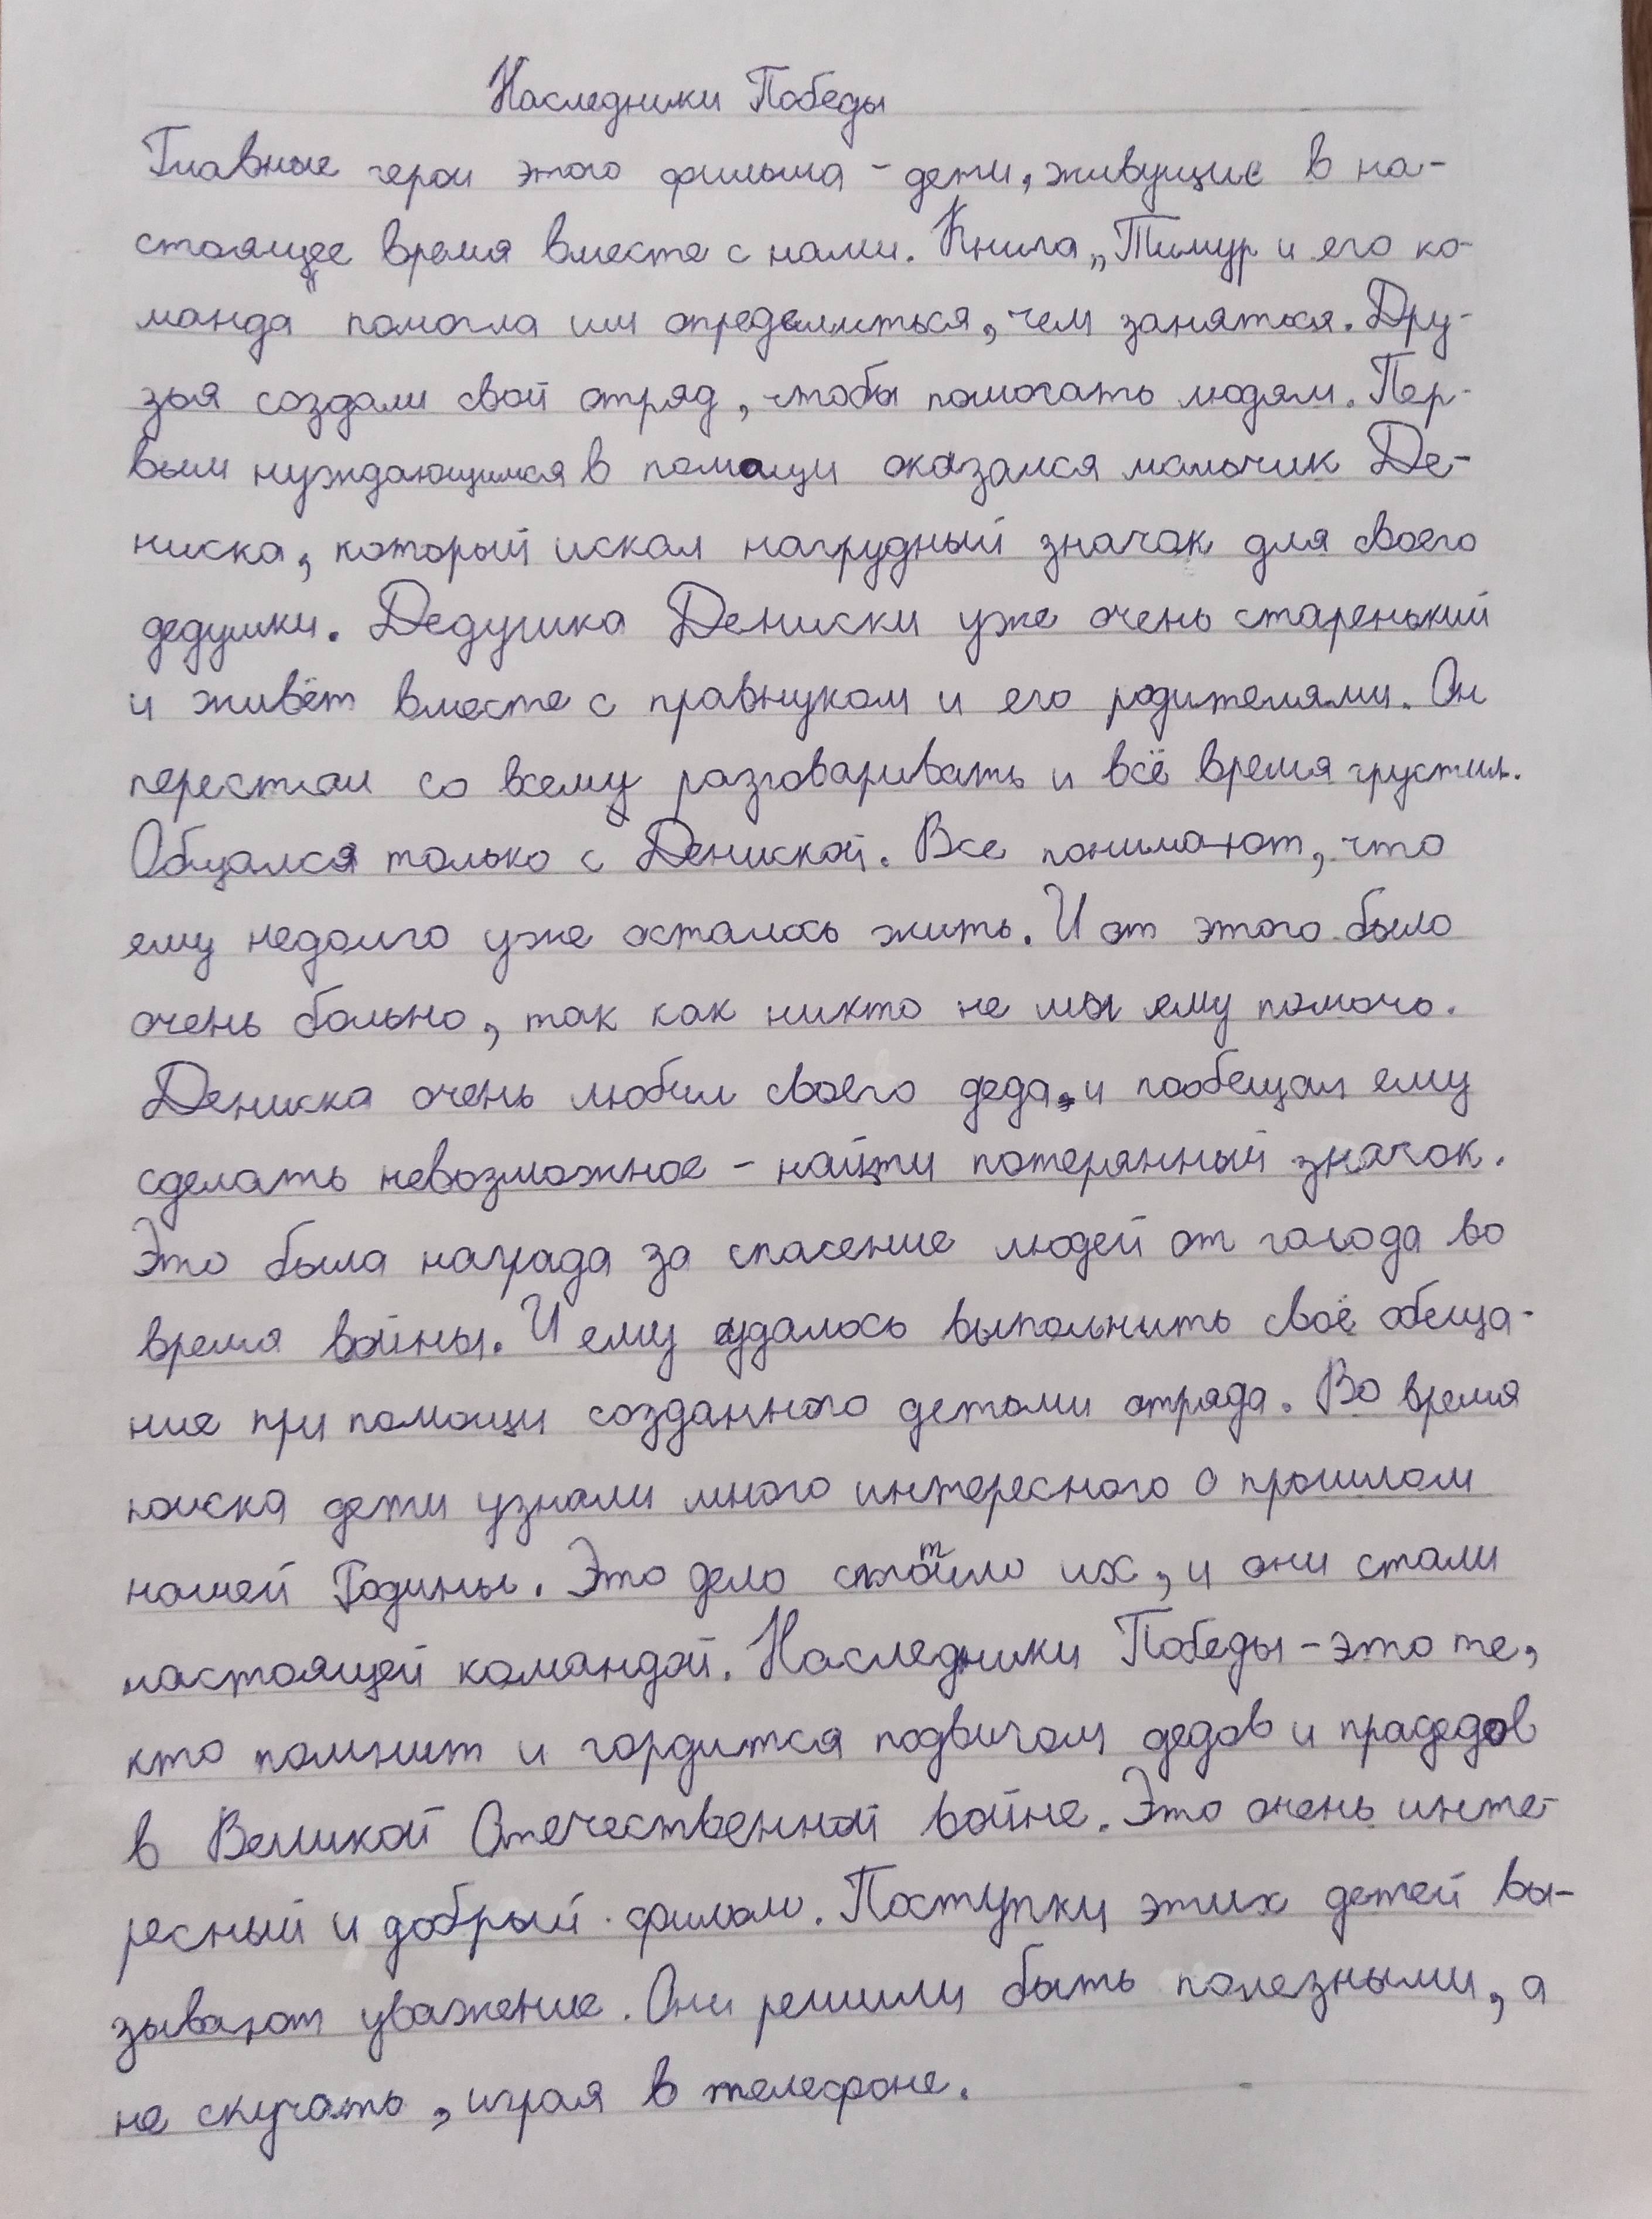 Наследники Победы
Главные герои этого фильма - дети, живущие в на-
стоящее время вместе с нами. Книга „Тимур и его ко-
манда" помогла им определиться, чем заняться. Дру-
зья создали свой отряд, чтобы помогать людям. Пер-
вым нуждающимся в помощи оказался мальчик Де-
ниска, который искал нагрудный значок для своего
дедушки. Дедушка Дениски уже очень старенький
и живёт вместе с правнуком и его родителями. Он
перестал со всему разговаривать и всё время грустил.
Общался только с Дениской. Все понимают, что
ему недолго уже осталось жить. И от этого было
очень больно, так как никто не мог ему помочь.
Дениска очень любил своего деда, и пообещал ему
сделать невозможное - найти потерянный значок.
Это была награда за спасение людей от голода во
время войны. И ему удалось выполнить своё обеща-
ние при помощи созданного детьми отряда. Во время
поиска дети узнали много интересного о прошлом
нашей Родины. Это дело их, и они стали
настоящей командой. Наследники Победы - это те,
кто помнит и гордится подвигом дедов и прадедов
в Великой Отечественной войне. Это очень инте-
ресный и добрый фильм. Поступки этих детей вы-
зывают уважение. Они решили быть полезными, а
не скучать, играя в телефоне.